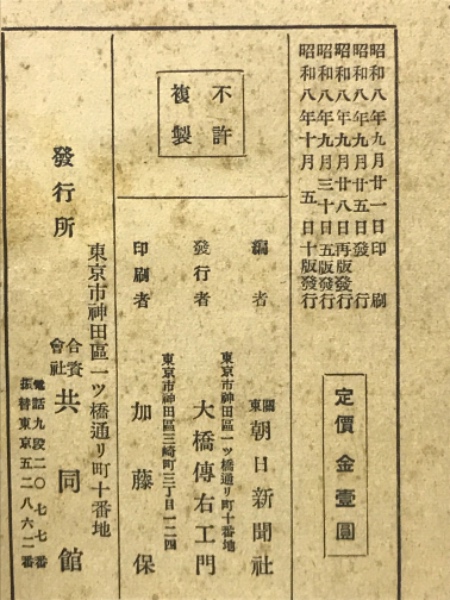 昭和八年九月廿一日印刷
昭和八年九月廿五日發行
昭和八年九月廿八日再版發行
昭和八年九月三十日五版發行
昭和八年十月五日十版發行
定價金壹圓
不許
複製
編者
關東朝日新聞社
發行者
東京市神田區一ツ橋通リ町十番地
大橋傳右エ門
印刷者
東京市神田區三崎町三丁目一二四
加藤保
發行所
東京市神田區一ツ橋通リ町十番地
合資會社共同館
電話九段二〇七七番
振替東京五二八六二番